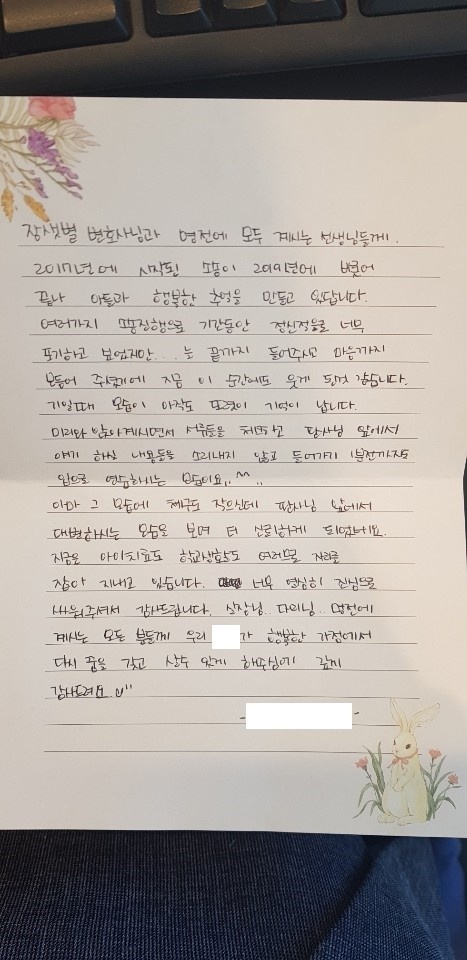 장샛별 변호사님과 명전에 모두 계시는 선생님들께.
2017년에 시작된 소송이 2019년에 빛
끝나 아들과 행복한 추억을 만들고 있답니다.
여러가지 소송진행으로 기간동안 정신적을 너무
포기하고 싶었지만... 는 끝까지 들어주시고 마음까지
보듬어 주셨기에 지금 이 순간에도 웃게 된것 같습니다.
기일때 모습이 아직도 또렷이 기억이 납니다.
미리와 앉아계시면서 서류들을 체크하고 판사님 앞에서
얘기 하실 내용들을 소리내지 않고 들어가기 1분전까지도
입으로 연습하시는 모습이요,, ^^ ,,
아마 그 모습에 체구도 작으신데 판사님 앞에서
대변하시는 모습을 보며 더 신뢰하게 되었네요.
지금은 아이치료도 학교생활도 여러모로 자리를
잡아 지내고 있습니다. 너무 열심히 진심으로
싸워주셔서 감사드립니다. 실장님.. 대리님.. 명전에
계시는 모든 분들께 우리 가 행복한 가정에서
다시 꿈을 갖고 살수 있게 해주심에 깊이
감사드려요